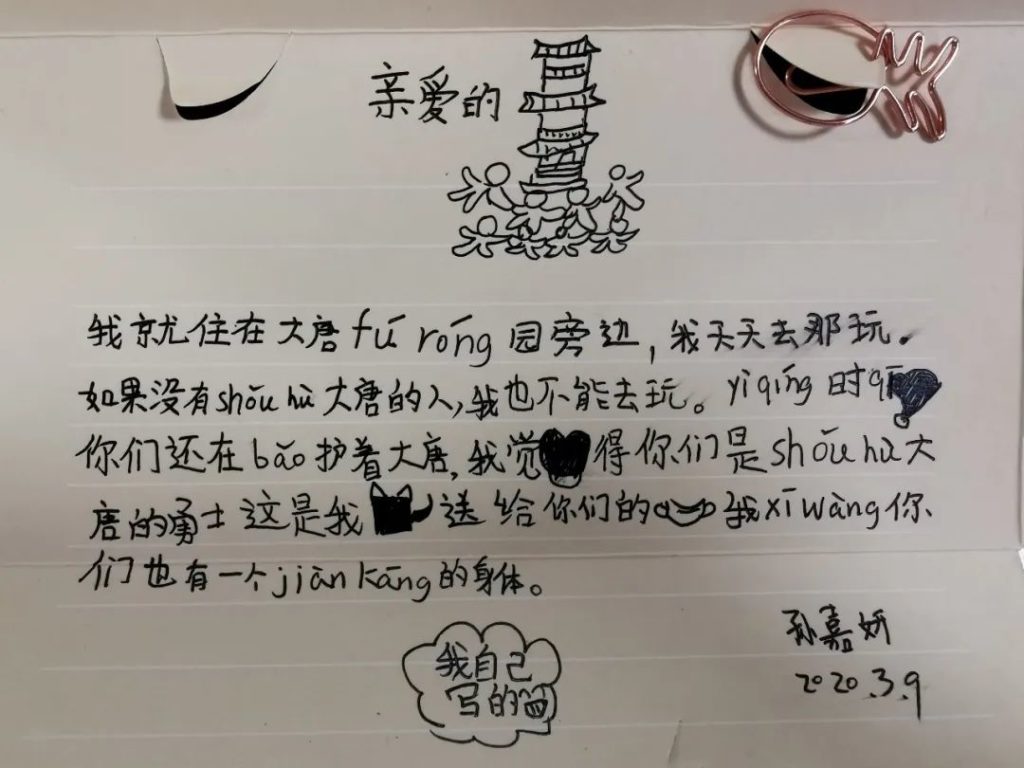 亲爱的
我就住在大唐fú róng园旁边，我天天去那玩。
如果没有shǒu hù大唐的人，我也不能去玩。yì qíng时qī
你们还在bǎo护着大唐，我觉得你们是shǒu hù大
唐的勇士这是我送给你们的我xī wàng你
们也有一个jiàn kāng的身体。
孙嘉妍
2020.3.9
我自己
写的